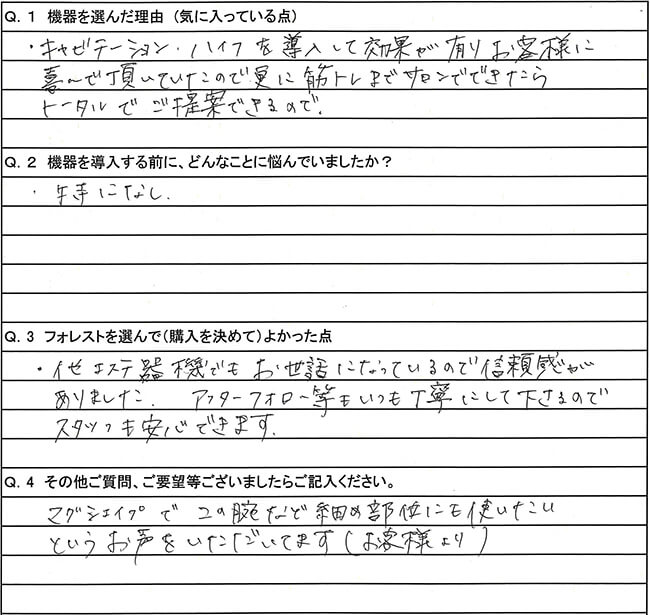 Q.1 機器を選んだ理由 (気に入っている点)
・キャビテーション・ハイフを導入して効果が有りお客様に
喜んで頂いていたので更に筋トレまでサロンでできたら
トータルでご提案できるので.
Q.2 機器を導入する前に、どんなことに悩んでいましたか?
・特になし.
Q.3 フォレストを選んで(購入を決めて)よかった点
・他エステ器機でもお世話になっているので信頼感が
ありました. アフターフォロー等もいつも丁寧にして下さるので
スタッフも安心できます.
Q.4 その他ご質問、ご要望等ございましたらご記入ください。
マグシェイプで 二の腕など細め部位にも使いたい
というお声をいただいてます(お客様より)